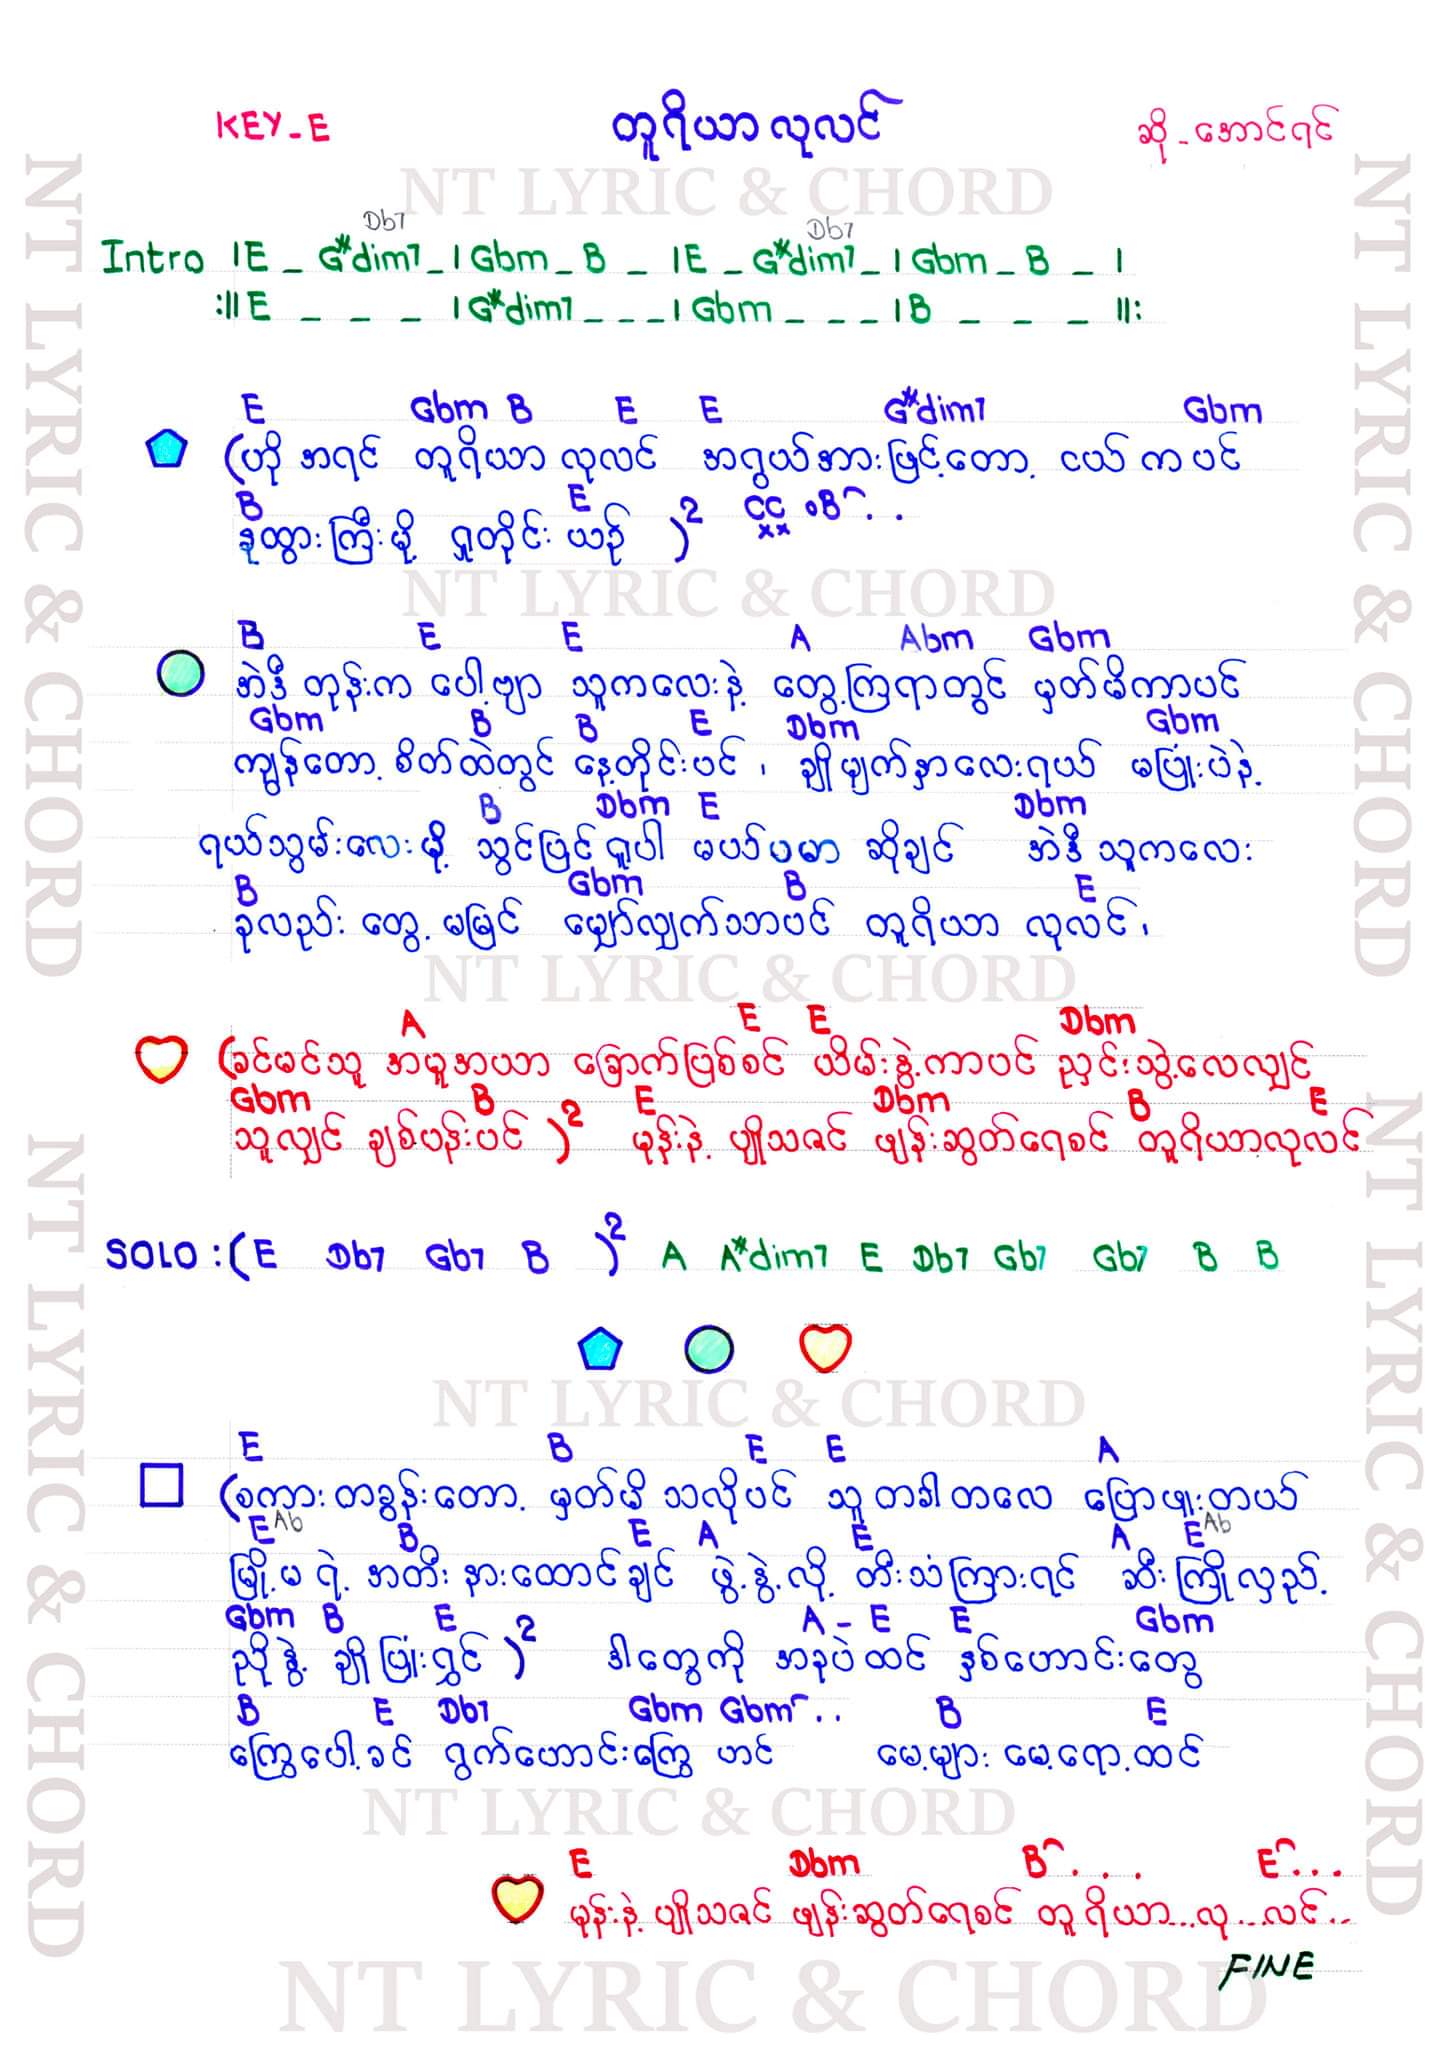 KEY-E တူရိယာလုလင် ဆို-အောင်ရင်
NT LYRIC & CHORD
Db7 Db7
Intro |E _ G*dim7 _ | Gbm _ B _ |E _ G*dim7 _ | Gbm _ B _ |
:||E _ _ _ | G*dim7 _ _ _ | Gbm _ _ _ | B _ _ _ ||:
E Gbm B E E G*dim7 Gbm
(ဟို အရင် တူရိယာ လုလင် အရွယ်အားဖြင့်တော့ ငယ် ကပင်
B E CC B . .
ခုထွားကြီးမို့ ရှုတိုင်း ယဉ် )2
NT LYRIC & CHORD
B E E A Abm Gbm
အဲဒီ တုန်းက ပေါ့ဗျာ သူကလေးနဲ့ တွေ့ကြရာတွင် မှတ်မိကာပင်
Gbm B B E Dbm Gbm
ကျွန်တော့ စိတ်ထဲတွင် နေ့တိုင်းပင် ၊ ချိုမျက်နှာလေးရယ် မပြုံးပဲနဲ့
B Dbm E Dbm
ရယ်သွမ်းလေးမို့ သွင်ဖြင် ရူပါ မယ်ပမာ ဆိုချင် အဲဒီ သူကလေး
B Gbm B E
ခုလည်း တွေ့ မမြင် မျှော်လျှက်သာပင် တူရိယာ လုလင် ၊
NT LYRIC & CHORD
A E E Dbm
(ခင်မင်သူ အမူအယာ ခြောက်ပြစ်စင် ယိမ်းနွဲ့ကာပင် ညှင်းသွဲ့လေလျှင်
Gbm B E Dbm B E
သူလျှင် ချစ်ပန်းပင် )2 မုန်းနဲ့ ပျိုသဇင် ဖျန်းဆွတ်ရေစင် တူရိယာလုလင်
SOLO :(E Db7 Gb7 B )2 A A*dim7 E Db7 Gb7 Gb7 B B
NT LYRIC & CHORD
E B E E A
(စကားတခွန်းတော့ မှတ်မိ သလိုပင် သူတခါတလေ ပြောဖူးတယ်
E Ab B E A E A E Ab
မြို့မ ရဲ့ အတီး နားထောင်ချင် ဖွဲ့နွဲ့လို့ တီးသံကြားရင် ဆီးကြိုလှည့်
Gbm B E A - E E Gbm
ညိုနွဲ့ ချိုပြုံးရွှင် )2 ဒါတွေကို အခုပဲထင် နှစ်ဟောင်းတွေ
B E Db7 Gbm Gbm . . B E
ကြွေပေါ့ခင် ရွက်ဟောင်းကြွေ ဟင် မေ့များ မေ့ရော့ထင်
NT LYRIC & CHORD
E Dbm B . . . E . . .
မုန်းနဲ့ ပျိုသဇင် ဖျန်းဆွတ်ရေစင် တူရိယာ...လု...လင်..
FINE
NT LYRIC & CHORD
NT LYRIC & CHORD
NT LYRIC & CHORD
NT LYRIC & CHORD
NT LYRIC & CHORD